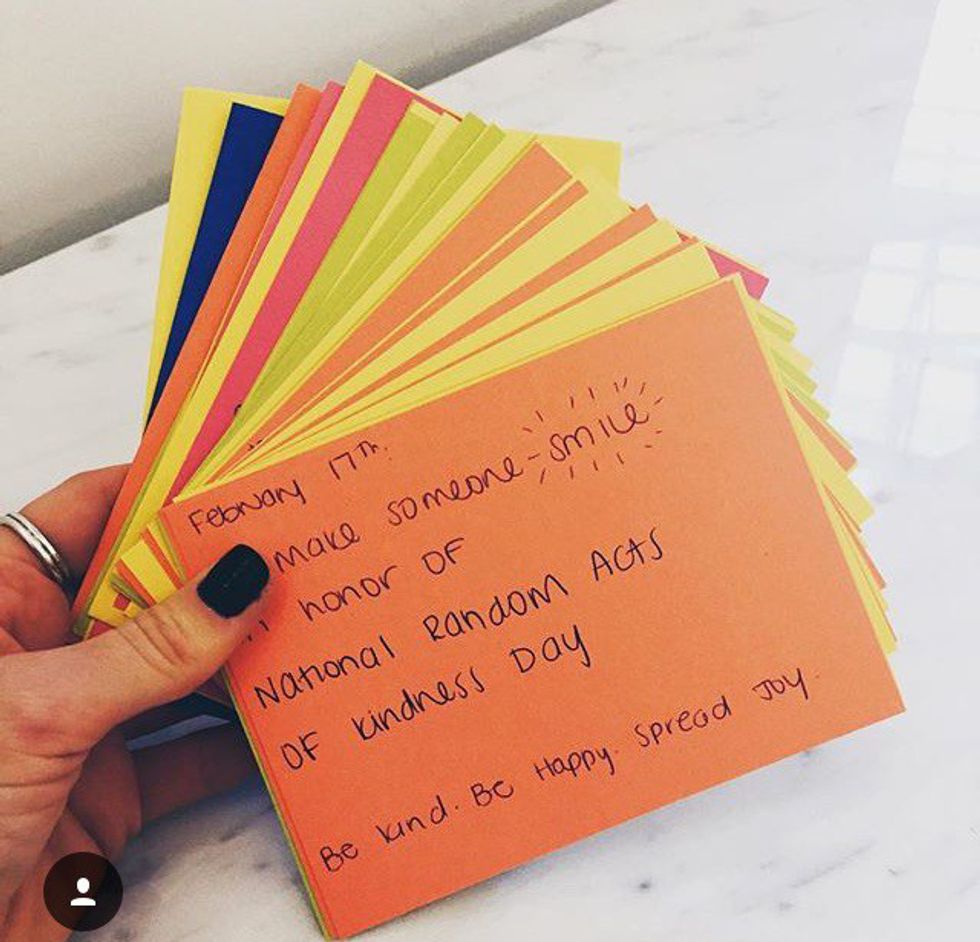 February 17th.
make someone smile
honor OF
National Random Acts
OF kindness Day
Be kind. Be Happy. Spread Joy.